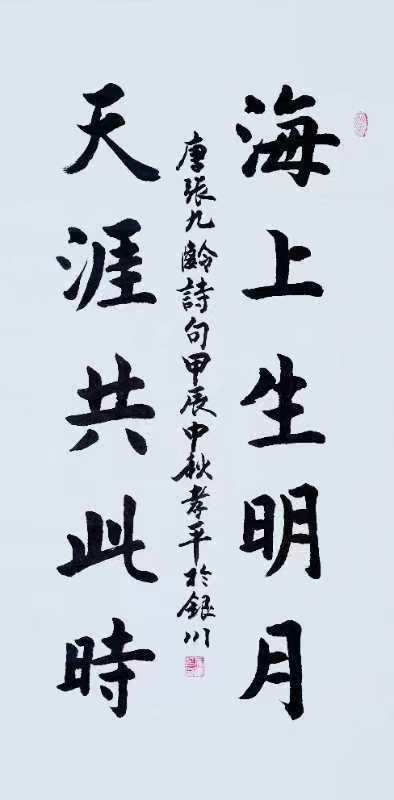 海上生明月
天涯共此時
唐張九齡詩句甲辰中秋孝平於銀川